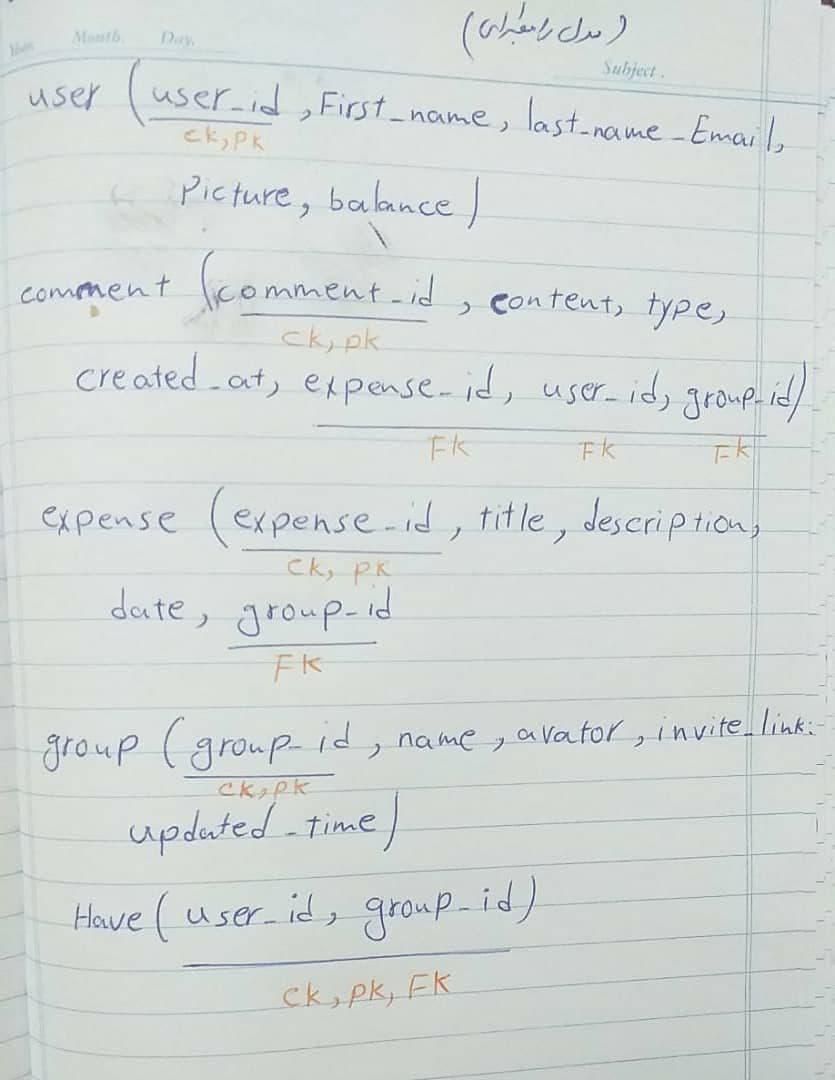 Month. Day,
(مدل رابطه‌ای)
Subject.
user (user_id, First_name, last_name_Email,
ck,pk
Picture, balance)
comment (comment_id, content, type,
ck, pk
created_at, expense_id, user_id, group_id)
FK FK FK
expense (expense_id, title, description,
ck, pk
date, group_id
FK
group (group_id, name, avator, invite_link.
ck,pk
updated_time)
Have (user_id, group_id)
ck, pk, FK